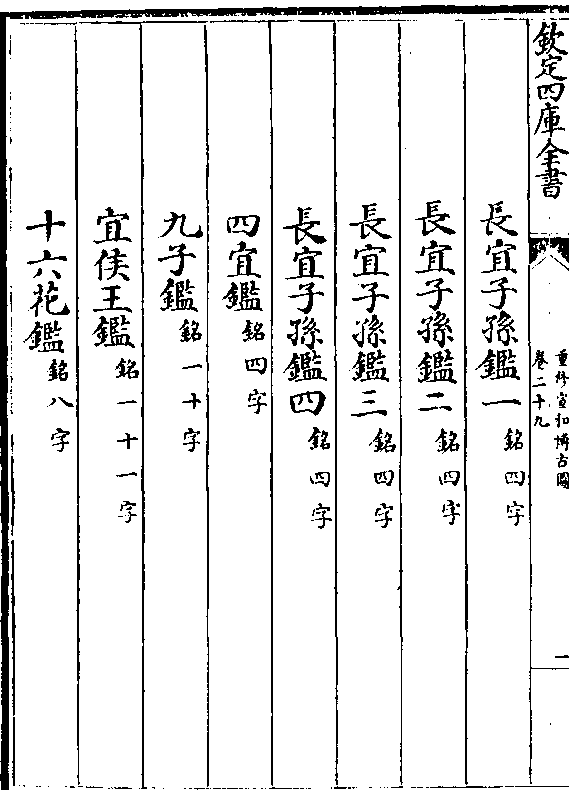 欽定四庫全書
重修宣和博古圖
卷二十九
一
長宜子孫鑑一銘四字
長宜子孫鑑二銘四字
長宜子孫鑑三銘四字
長宜子孫鑑四銘四字
四宜鑑銘四字
九子鑑銘一十字
宜侯王鑑銘一十一字
十六花鑑銘八字